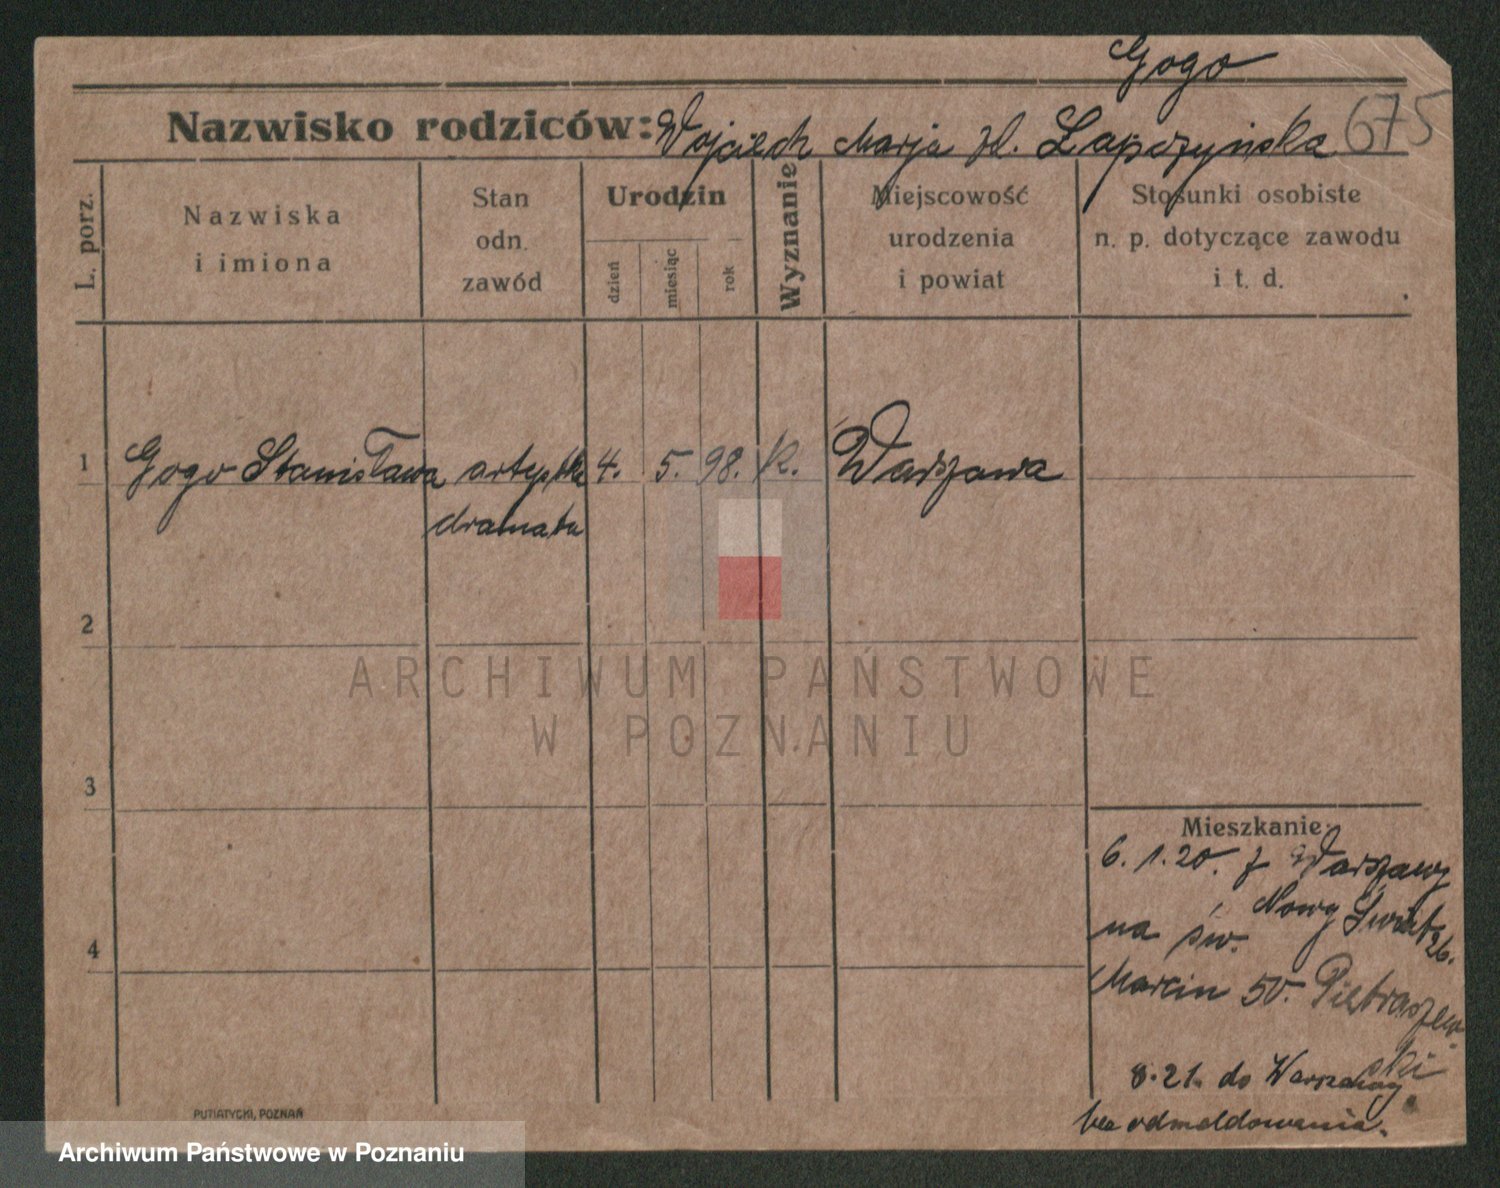 Gogo
Nazwisko rodziców: Wojciech Marja zd. Łapczyńska 675
L. porz.
Nazwiska
i imiona
Stan
odn.
zawód
Urodzin
dzień
miesiąc
rok
Wyznanie
Miejscowość
urodzenia
i powiat
Stosunki osobiste
n. p. dotyczące zawodu
i t. d.
1 Gogo Stanisława artystka 4. 5. 98. k. Warszawa
dramatu
2
ARCHIWUM PAŃSTWOWE
W POZNANIU
3
Mieszkanie:
6.1.20. z Warszawy
Nowy Świat 26.
na św.
4
Marcin 50. Pietraszew-
ski
8.21. do Warszawy
bez odmeldowania.
PUTIATYCKI, POZNAŃ
Archiwum Państwowe w Poznaniu